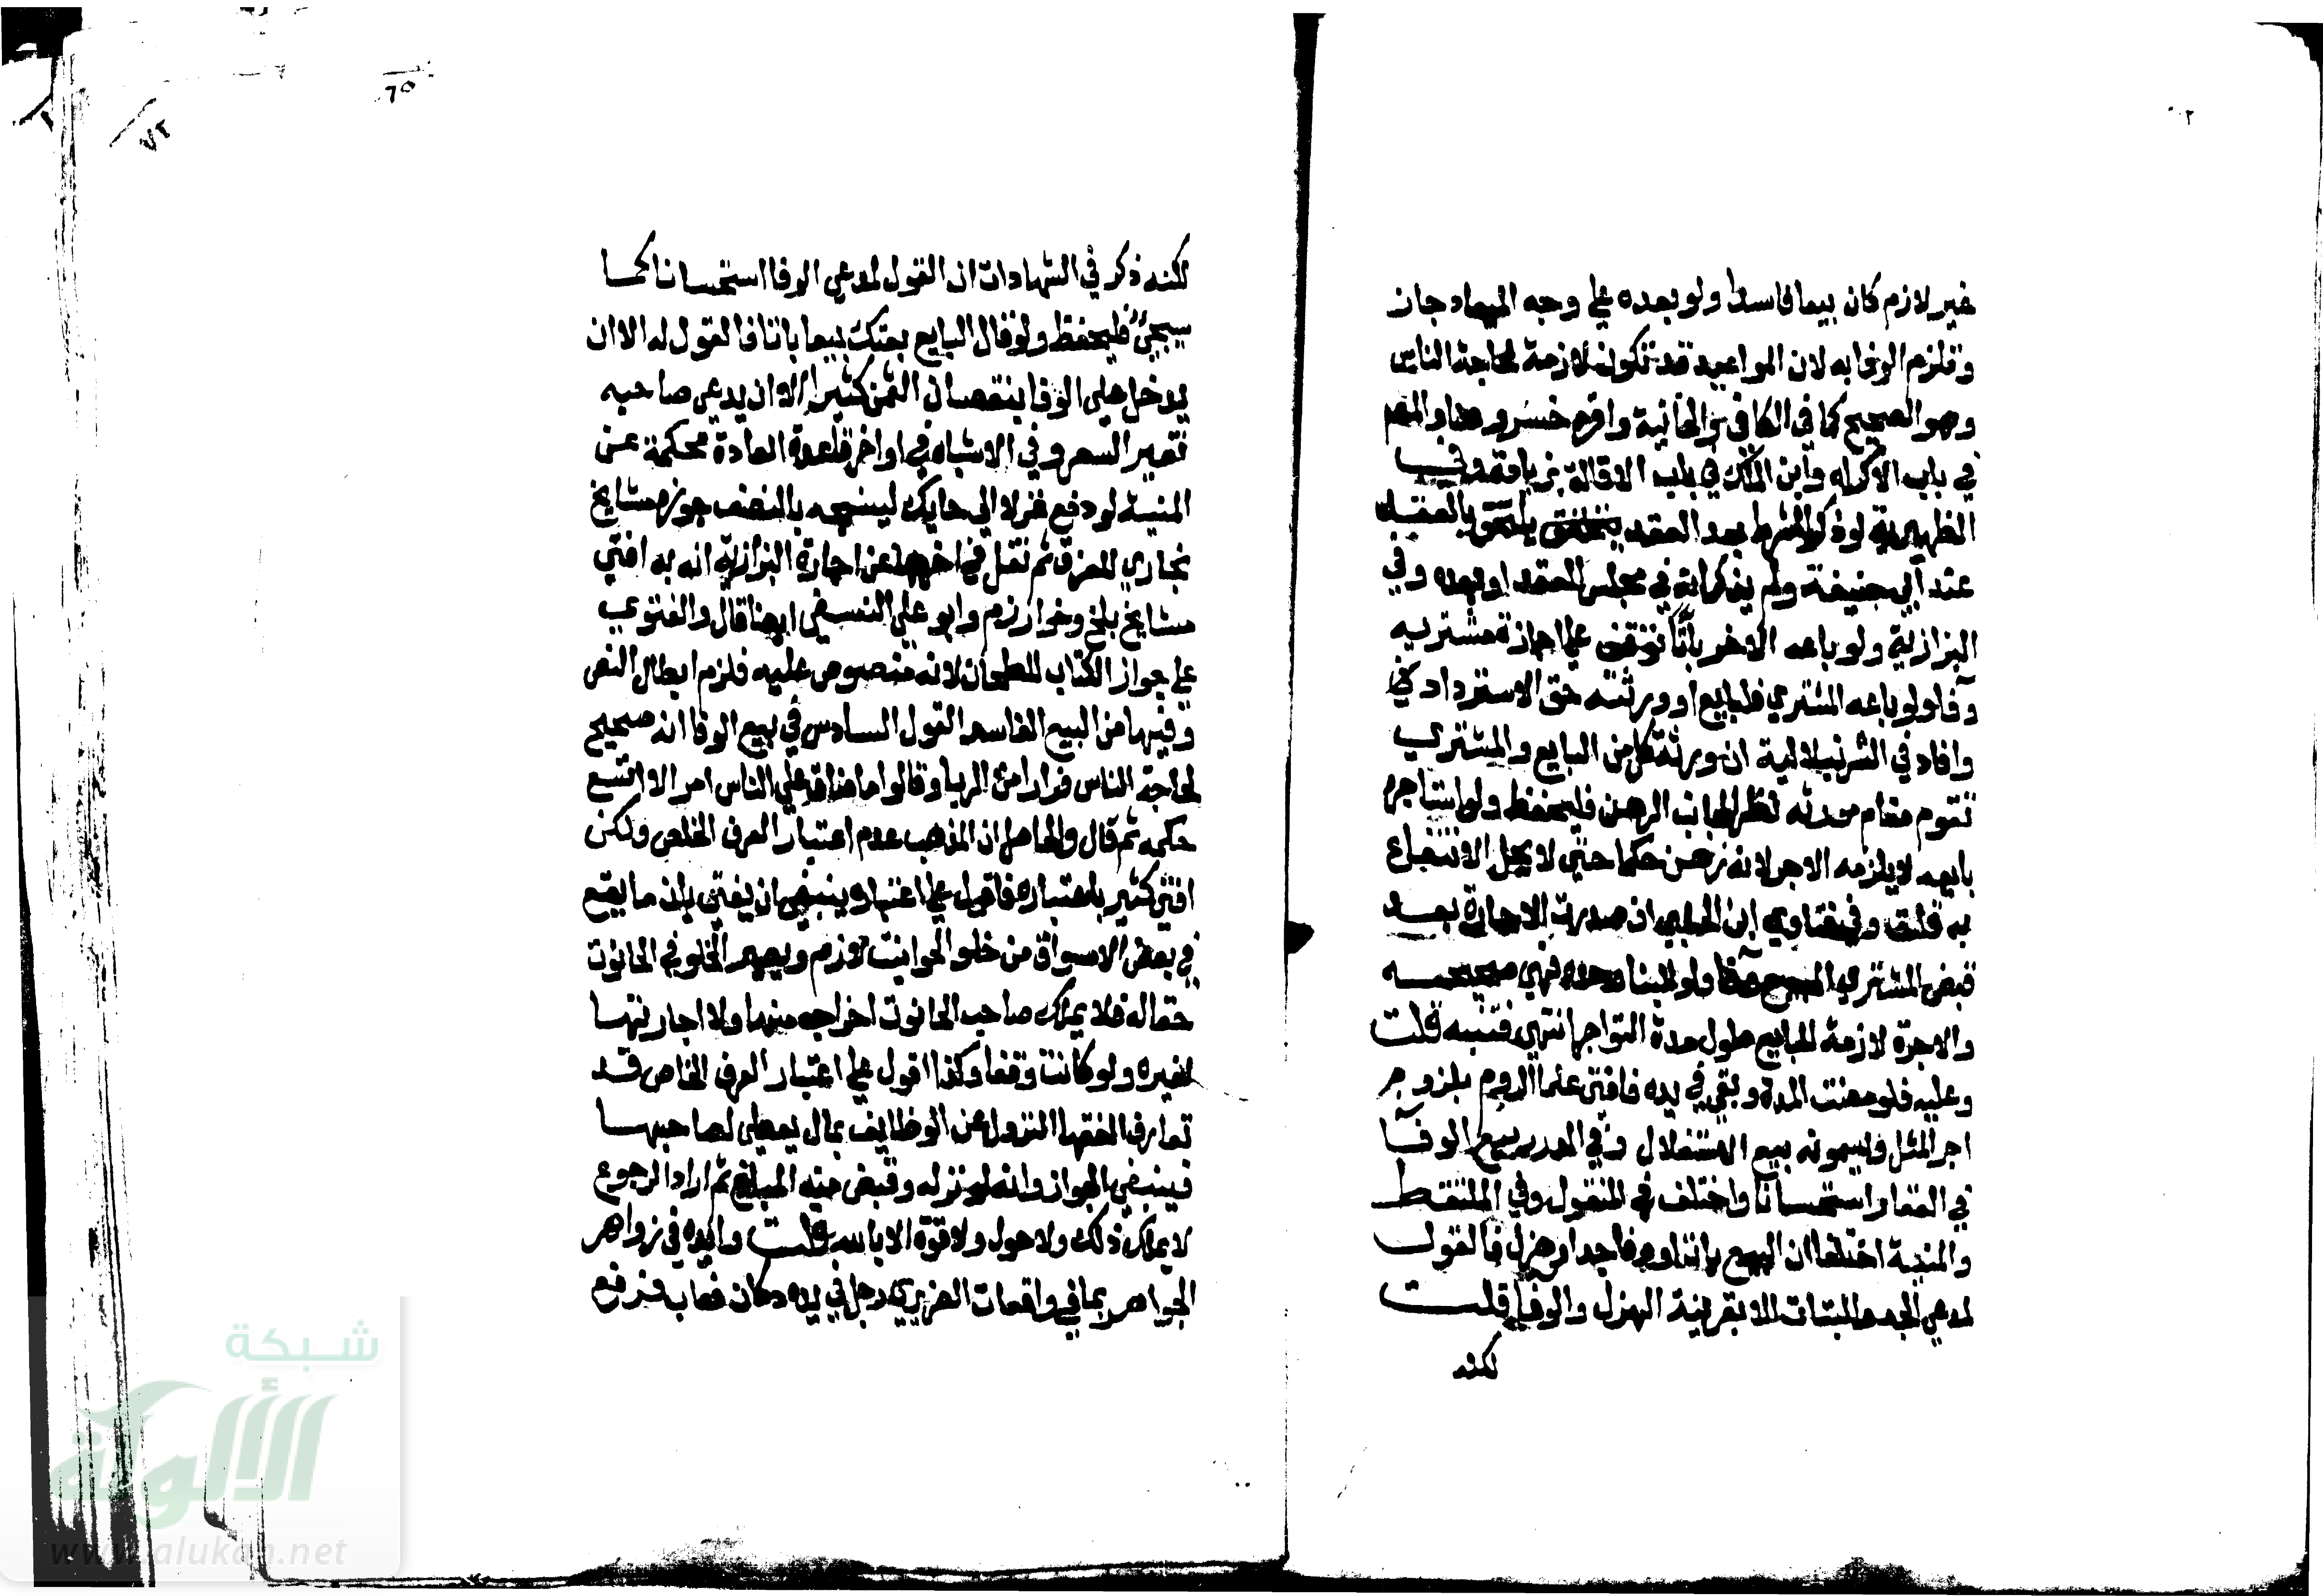 غير لازم كان بيعا فاسدا ولو بعده على وجه الميعاد جاز
وتلزم الوفا به لان المواعيد قد تكون لازمة لحاجة الناس
وهو الصحيح كما في الكافي والخانية واقره خسرو هنا والمص
في باب الاكراه وابن الملك في باب الاقالة بزيادة وفي
الظهيرية لو ذكرا الشرط بعد العقد يلتحق بالعقد
عند ابي حنيفة ولم يذكر انه في مجلس العقد او بعده وفي
البزازية ولو باعه الاخر باتا توقف على اجازة مشتريه
وفا ولو باعه المشتري فللبايع او ورثته حق الاسترداد
وافاد في الشرنبلالية ان ورثة كل من البايع والمشتري
تقوم مقام مورثه نظرا لجانب الرهن فليحفظ ولو استاجره
بايعه لا يلزمه الاجر لانه رهن حكما حتى لا يحل الانتفاع
به قلت وفي فتاوي ابن الحلبي ان صدرت الاجارة بعد
قبض المشتري المبيع وفا ولو للبنا وحده فهي صحيحه
والاجرة لازمة للبايع طول مدة التواجر انتهى فتنبه قلت
وعليه فلو مضت المدة وبقي في يده فافتى علما الروم بلزوم
اجر المثل ويسمونه بيع الاستغلال وفي الدرر بيع الوفا
في العقار استحسانا واختلف في المنقول وفي الملتقط
والمنية اختلفا ان البيع باتا او وفا جد او هزل فالقول
لمدعي الجد والبتات الا بقرينة الهزل والوفا قلت
لكنه
٦٥
٧٢
لكنه ذكر في الشهادات ان القول لمدعي الوفا استحسانا كما
سيجئ فليحفظ ولو قال البايع بعتك بيعا باتا فالقول له الا ان
يدخل على الوفا بنقصان الثمن كثيرا الا ان يدعى صاحبه
تغير السعر وفي الاشباه في اواخر قاعدة العادة محكمة عن
المنية لو دفع غزلا الى حايك لينسجه بالنصف جوزه مشايخ
بخاري للعرف ثم نقل في اخرها عن اجارة البزازية انه به افتى
مشايخ بلخ وخوارزم وابو علي النسفي ايضا قال والفتوي
على جواز الكتاب للطحان لانه منصوص عليه فلزم ابطال النص
وفيها من البيع الفاسد القول السادس في بيع الوفا انه صحيح
لحاجة الناس فرارا من الربا وقالوا ما ضاق على الناس امر الا اتسع
حكمه ثم قال والحاصل ان المذهب عدم اعتبار العرف الخاص ولكن
افتى كثير باعتباره فاقول على اعتباره ينبغي ان يفتى بان ما يقع
في بعض الاسواق من خلو الحوانيت لازم ويصير الخلو في الحانوت
حقا له فلا يملك صاحب الحانوت اخراجه منها ولا اجارتها
لغيره ولو كانت وقفا وكذا اقول على اعتبار العرف الخاص قد
تعارف الفقها النزول عن الوظايف بمال يعطى لصاحبها
فينبغي الجواز وانه لو نزل له وقبض منه المبلغ ثم اراد الرجوع
لا يملك ذلك ولا حول ولا قوة الا بالله قلت وايده في زواهر
الجواهر بما في واقعات الضريري رجل في يده دكان فغاب فرفع
شبكة
الألوكة
www.alukah.net